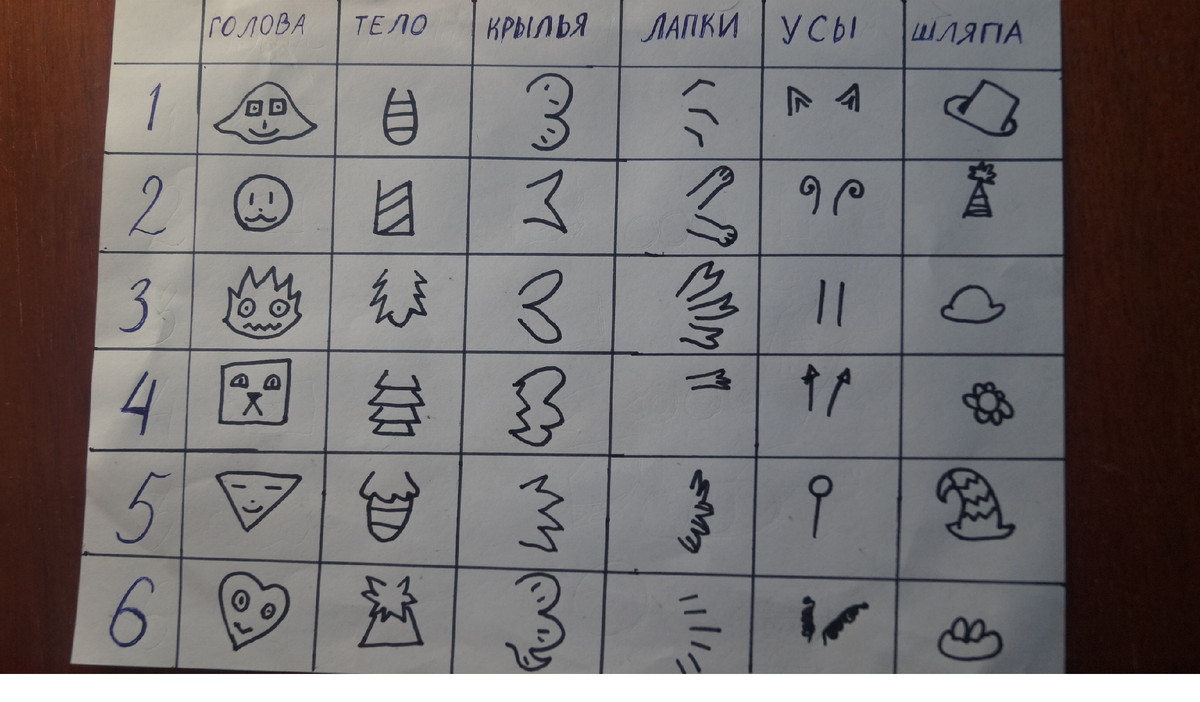 ГОЛОВА ТЕЛО КРЫЛЬЯ ЛАПКИ УСЫ ШЛЯПА
1
2
3
4
5
6